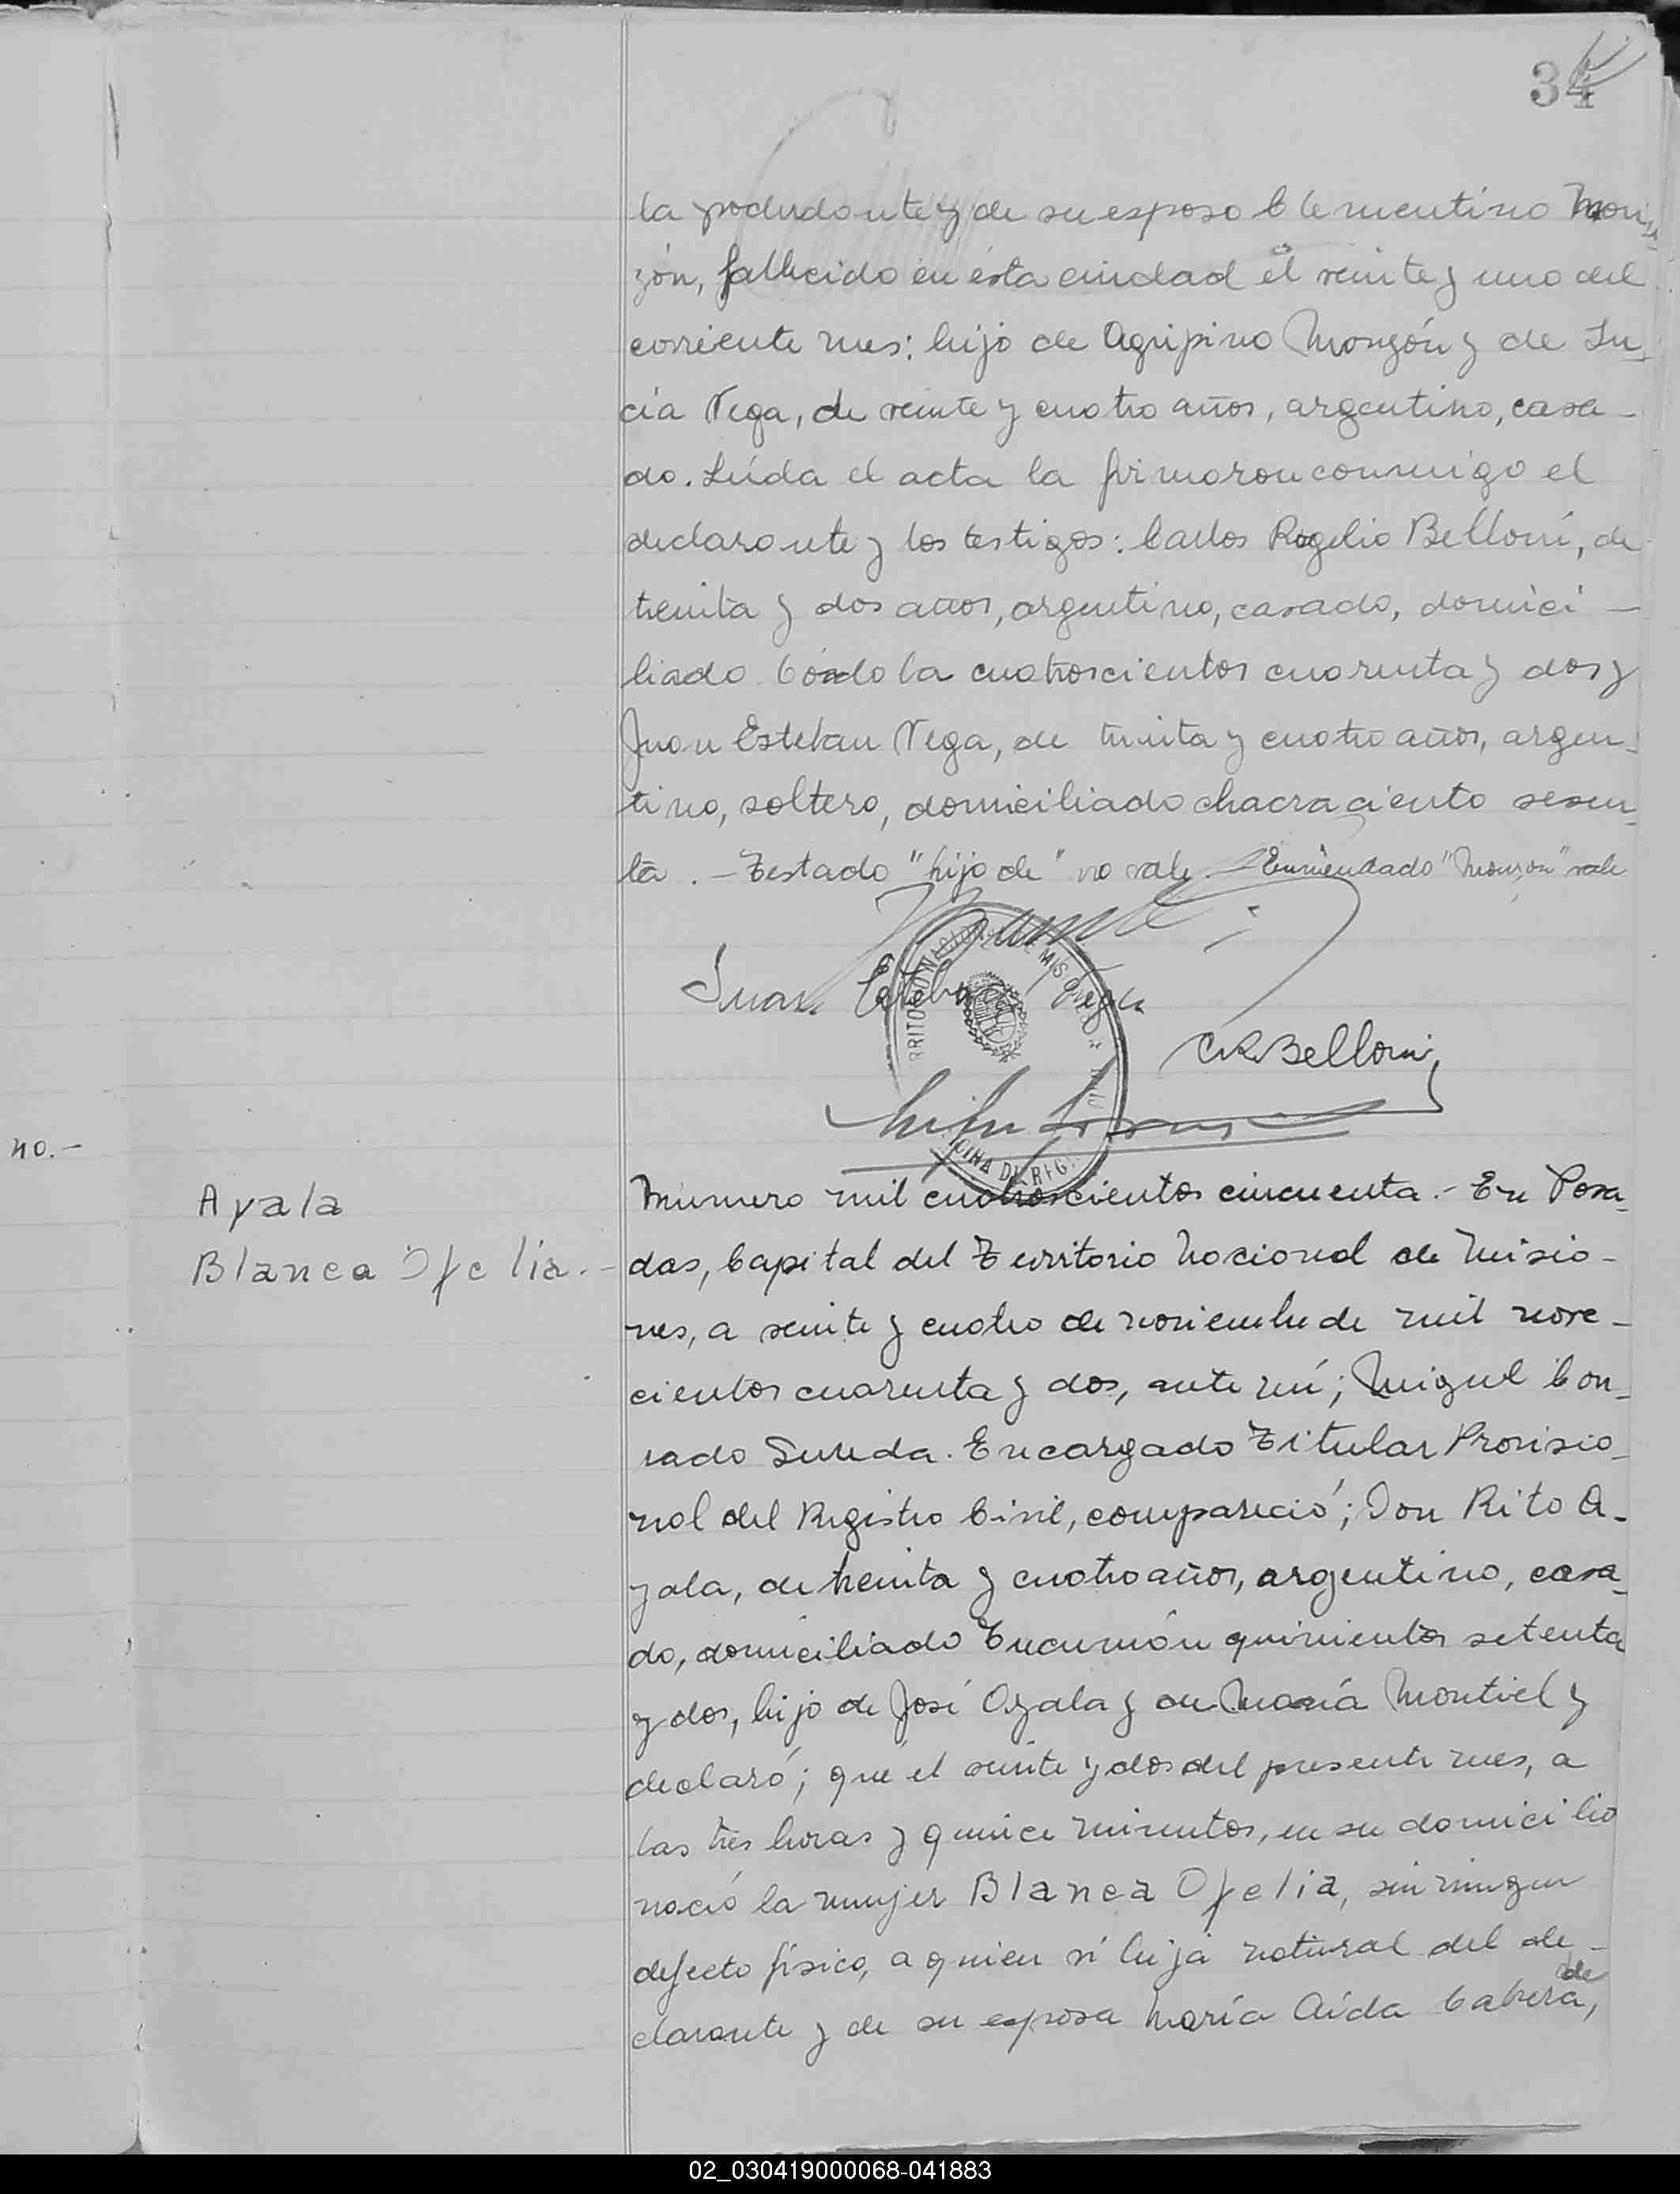 34
la predudante y de su esposo Clementino Mon-
zón, fallecido en ésta ciudad el veinte y uno del
corriente mes: hijo de Agripino Monzón y de Lu-
cía Vega, de veinte y cuatro años, argentino, casa-
do. Leída el acta la firmaron conmigo el
declarante y los testigos: Carlos Rogelio Belloni, de
treinta y dos años, argentino, casado, domici-
liado Córdoba cuatroscientos cuarenta y dos y
Juan Esteban Vega, de treinta y cuatro años, argen-
tino, soltero, domiciliado chacra ciento sesen-
ta. - Testado "hijo de" no vale. - Enmendado "Monzón" vale
Juan Esteban Vega
C.R. Belloni
no.-
Ayala
Blanca Ofelia.-
Número mil cuatroscientos cincuenta.- En Posa-
das, Capital del Territorio Nacional de Misio-
nes, a veinte y cuatro de noviembre de mil nove-
cientos cuarenta y dos, ante mí; Miguel Con-
rado Sureda. Encargado Titular Provisio-
nal del Registro Civil, compareció; Don Rito A-
yala, de treinta y cuatro años, argentino, casa-
do, domiciliado Tucumán quinientos setenta
y dos, hijo de José Ayala y de María Montiel y
declaró; que el veinte y dos del presente mes, a
las tres horas y quince minutos, en su domicilio
nació la mujer Blanca Ofelia, sin ningun
defecto físico, a quien ví hija natural del de-
clarante y de su esposa María Aída Cabrera, de
02_030419000068-041883